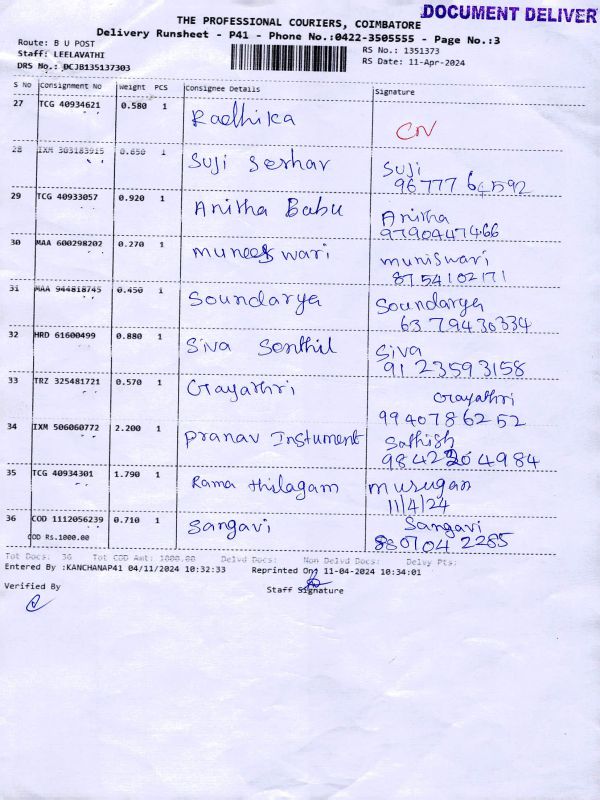 DOCUMENT DELIVER
THE PROFESSIONAL COURIERS, COIMBATORE
Delivery Runsheet - P41 - Phone No.:0422-3505555 - Page No.:3
Route: B U POST
Staff: LEELAVATHI
DRS No.: DCJB135137303
RS No.: 1351373
RS Date: 11-Apr-2024
S No Consignment No Weight PCS Consignee Details Signature
27 TCG 40934621 0.580 1 Radhika CN
28 IXM 303183915 0.650 1 Suji Serhar Suji
96777 64592
29 TCG 40933057 0.920 1 Anitha Babu Anitha
9790447466
30 MAA 600298202 0.270 1 muneeswari muniswari
8754102171
31 MAA 944818745 0.450 1 Soundarya Soundarya
6379430334
32 HRD 61600499 0.880 1 Siva Senthil Siva
9123593158
33 TRZ 325481721 0.570 1 Gayathri Gayathri
9940786252
34 IXM 506060772 2.200 1 Pranav Instument Sathish
9842204984
35 TCG 40934301 1.790 1 Rama thilagam murugan
11/4/24
36 COD 1112056239 0.710 1 Sangavi Sangavi
COD RS.1000.00 8807042285
Tot Docs: 36 Tot COD Amt: 1000.00 Delvd Docs: Non Delvd Docs: Delvy Pts:
Entered By :KANCHANAP41 04/11/2024 10:32:33 Reprinted On: 11-04-2024 10:34:01
Verified By Staff Signature